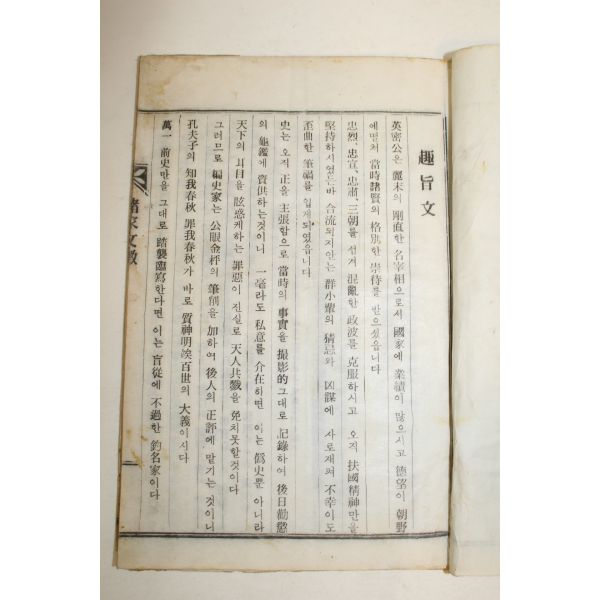 趣旨文
英密公은 麗末의 剛直한 名宰相으로서 國家에 業績이 많으시고 德望이 朝野
에떨처 當時諸賢의 格別한 崇待를 받으셨읍니다
忠烈、忠宣、忠肅、三朝를 섬겨 混亂한 政波를 克服하시고 오직 扶國精神만을
堅持하시였든바 合流되지안는 群小輩의 猜忌와 凶謀에 사로재펴 不幸이도
歪曲한 筆禍를 입게되였읍니다
史는 오직 正을 主張함으로 當時의 事實을 撮影的그대로 記錄하여 後日勸懲
의 龜鑑에 資供하는것이니 一毫라도 私意를 介在하면 이는 僞史뿐 아니라
天下의 耳目을 眩惑케하는 罪惡이 진실로 天人共戮을 免치못할것이다
그러므로 編史家는 公眼金秤의 筆削을 加하여 後人의 正評에 맡기는 것이니
孔夫子의 知我春秋 罪我春秋가 바로 質神明俟百世의 大義이시다
萬一 前史만을 그대로 踏襲臨寫한다면 이는 盲從에 不過한 釣名家이다
諸家文徵